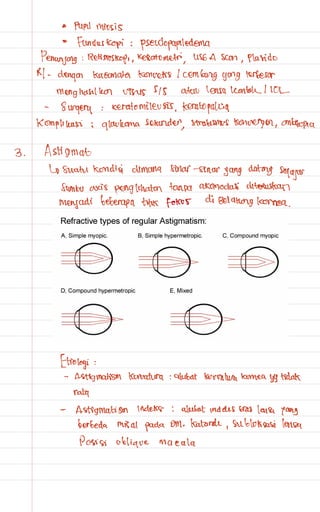 • Pupil miosis
• Funduskopi : pseudopapiledema
Penunjang : Retinoskopi, keratometri, USG A Scan, Plavido
R/ - dengan kacamata konveks / cembung yang terbesar
menghasilkan visus 5/5 atau lensa kontak / ICL
- Surgery : keratomileusis, keratopakia
Komplikasi : glaukoma sekunder, strabismus konvergen, ambliopia
3. Astigmat
↳ Suatu kondisi dimana sinar-sinar yang datang sejajar
sumbu axis penglihatan tanpa akomodasi dibiaskan
menjadi beberapa titik fokus di belakang kornea.
Refractive types of regular Astigmatism:
A. Simple myopic. B. Simple hypermetropic. C. Compound myopic
D. Compound hypermetropic E. Mixed
Etiologi :
- Astigmatism kurvatura : akibat kurvatura kornea yg tidak
rata
- Astigmatism Indeks : akibat indeks bias lensa yang
berbeda misal pada DM, katarak, subluksasi lensa
Posisi oblique macula